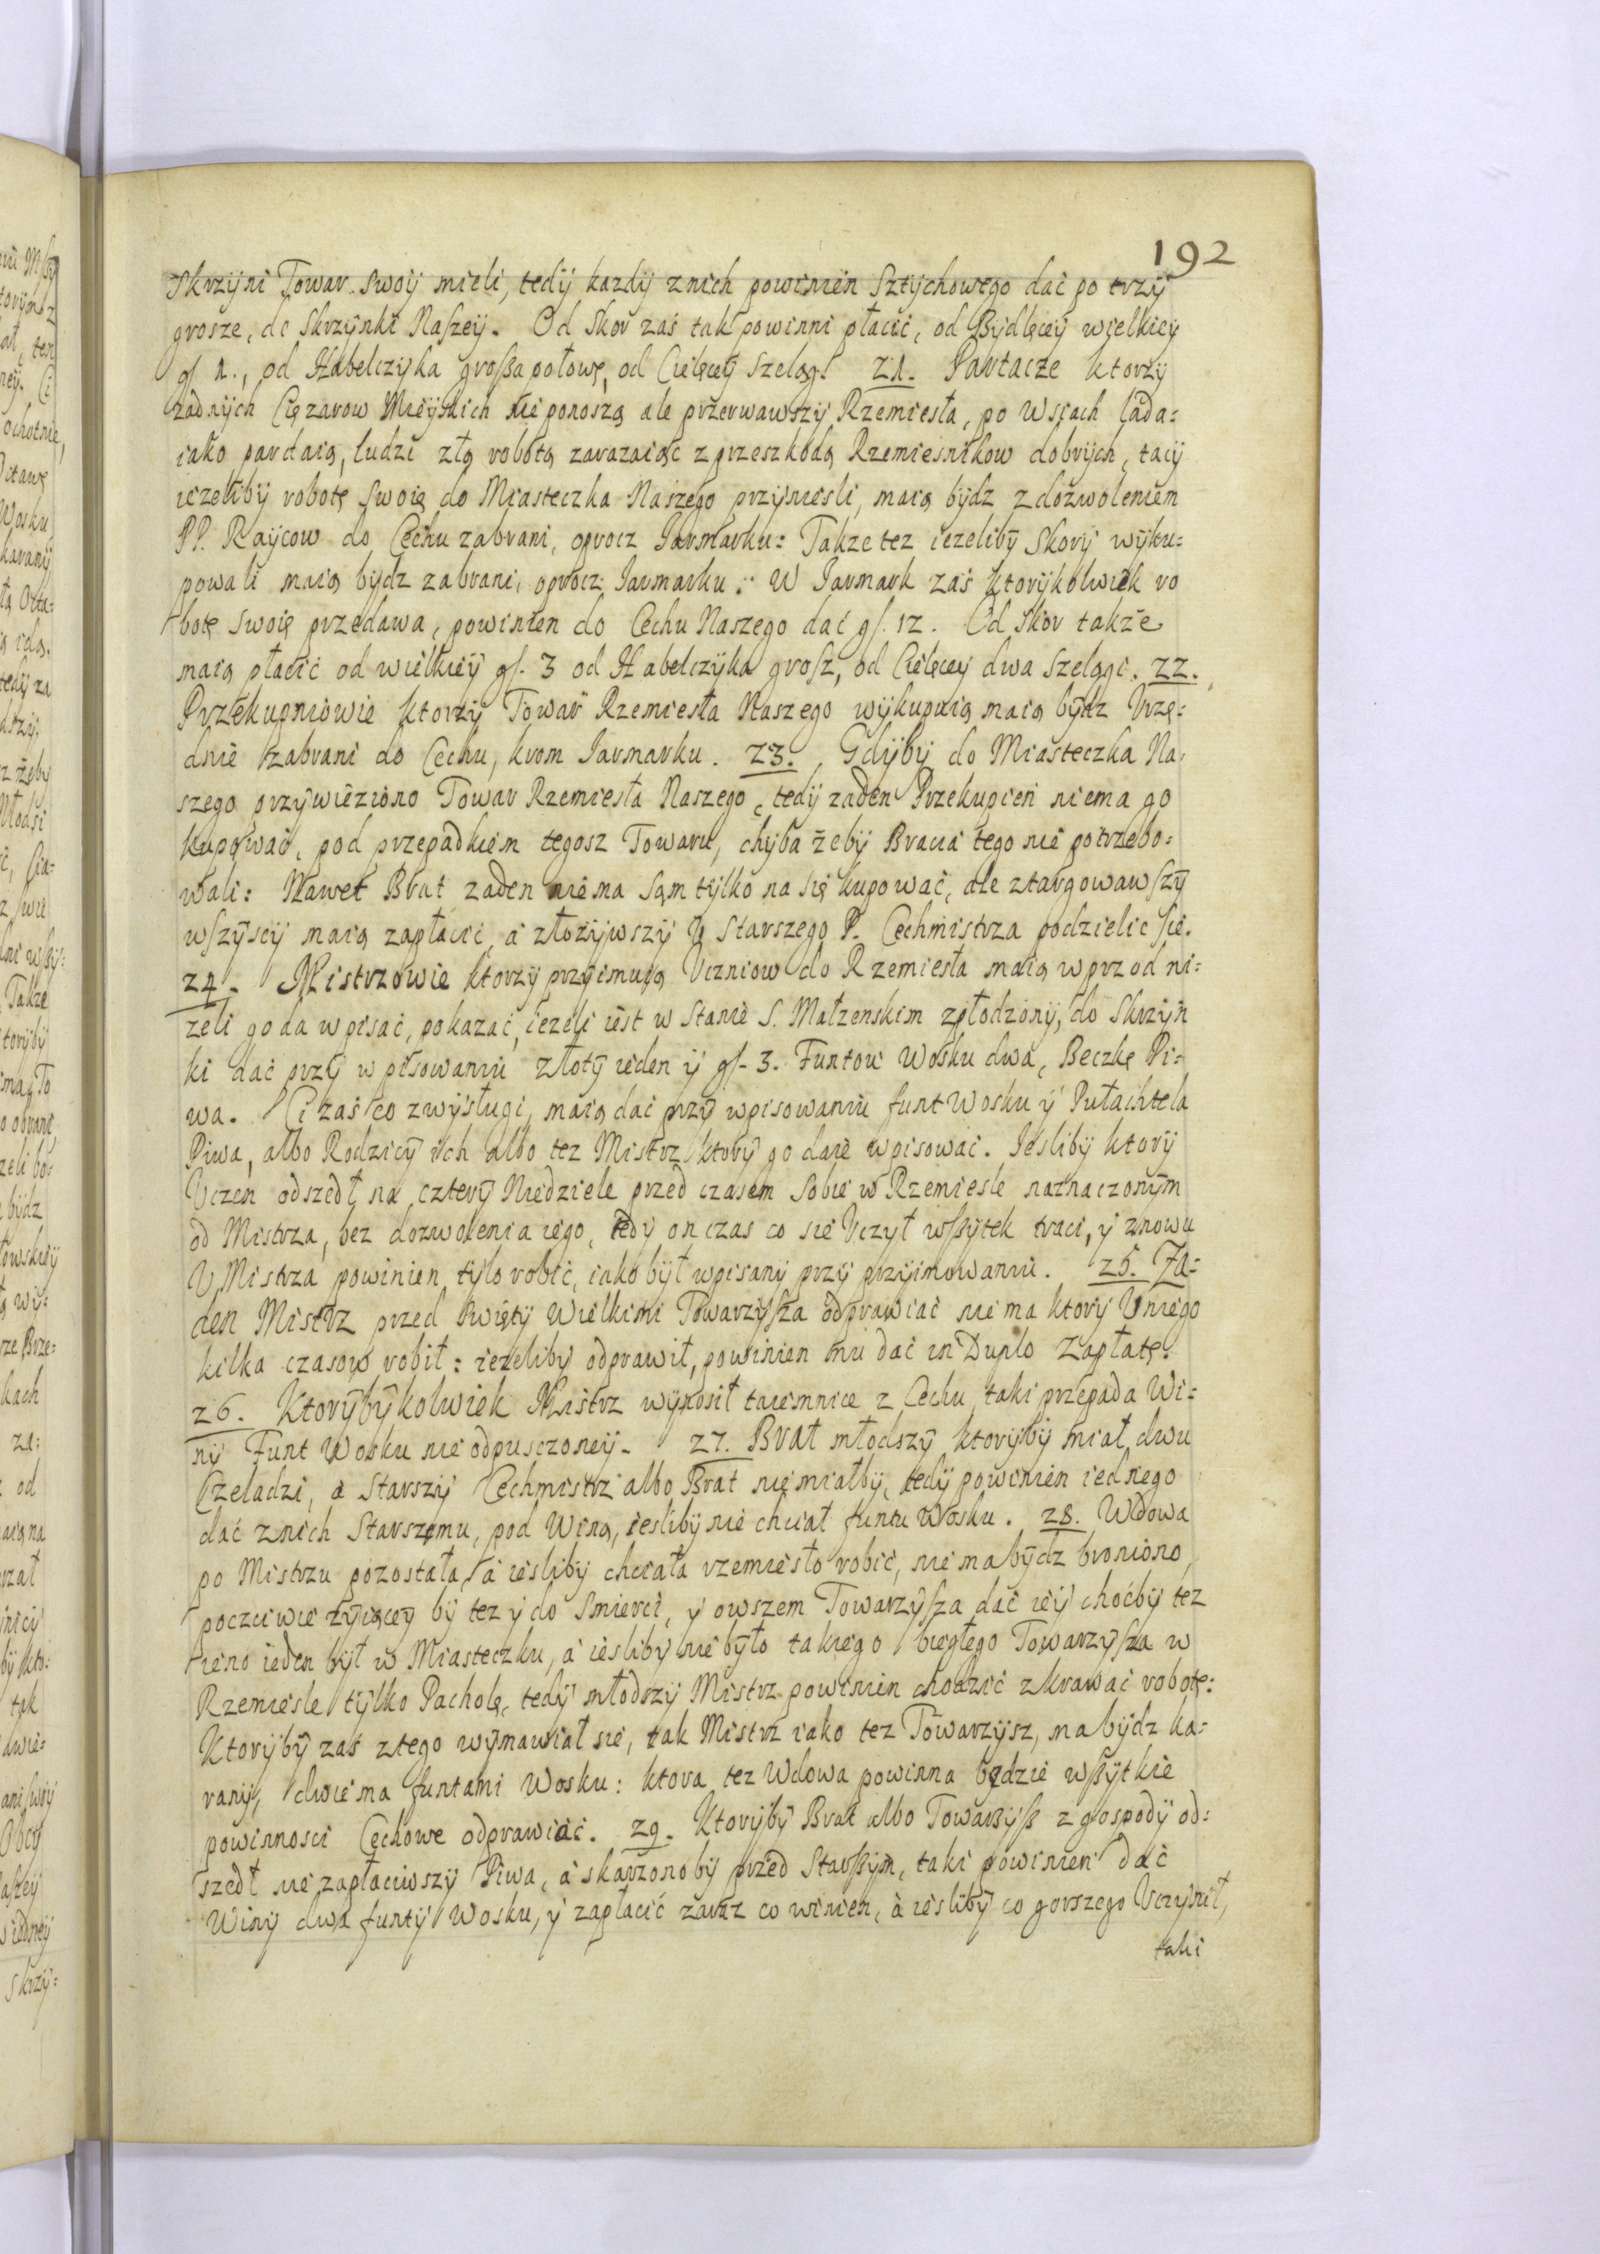 192
Skrzyni Towar swoÿ mieli, tedÿ kazdÿ z nich powinien Sztychowego dać po trzÿ
grosze, do Skrzÿnki Naszeÿ. Od Skor zaś tak powinni płacić, od Bÿdlęceÿ wielkieÿ
gſ 1., od Habelczÿka groſza połowę, od Cielęceÿ Szeląg. 21. Partacze ktorzÿ
zadnÿch Cięzarow Mieÿskich nie ponoszą ale przerwawszÿ Rzemiesła, po Wsiach lada=
iako partaią, ludzi złą robotą zarazaiąc z przeszkodą Rzemiesnikow dobrÿch, tacÿ
iezelibÿ robotę swoię do Miasteczka Naszego przÿniesli, maią bÿdz z dozwoleniem
PP. Raÿcow do Cechu zabrani, oprocz Iarmarku: Takze tez iezelibÿ Skorÿ wÿku=
powali maią bÿdz zabrani, oprocz Iarmarku: W Iarmark zaś ktorÿkolwiek ro
botę swoię przedawa, powinien do Cechu Naszego dać gſ. 12. Od Skor takze
maią płacić od wielkieÿ gſ. 3 od Habelczÿka groſz, od Cielęceÿ dwa Szelągi. 22.
Przekupniowie ktorzÿ Towar Rzemiesła Naszego wÿkupuią maią bÿdz Vrzę=
dnie zabrani do Cechu, krom Iarmarku. 23. Gdÿbÿ do Miasteczka Na=
szego przÿwieziono Towar Rzemiesła Naszego, tedÿ zaden Przekupień niema go
kupować, pod przepadkiem tegosz Towaru, chÿba żebÿ Bracia tego nie potrzebo=
wali: Nawet Brat zaden niema sąm tÿlko na się kupować, ale ztargowawſzÿ
wſzÿscÿ maią zapłacić, a złożÿwszÿ V Starszego P. Cechmistrza podzielic ſie.
24. Mistrzowie ktorzÿ przÿimuią Vczniow do Rzemiesła maią wprzod ni=
zeli go da wpisać, pokazać, iezeli iest w Stanie S. Małzenskim zpłodzonÿ, do Skrzÿn
ki dać przÿ wpisowaniu złotÿ ieden ÿ gſ. 3. Funtow Wosku dwa, Beczkę Pi=
wa. Ci zaś co zwÿsługi, maią dać przÿ wpisowaniu funt Wosku ÿ Pułachtela
Piwa, albo Rodzicÿ ich albo tez Mistrz ktorÿ go daie wpisować. Iesliby ktorÿ
Vczen odszedł na czterÿ Niedziele przed czasem sobie w Rzemiesle naznaczonÿm
od Mistrza, bez dozwolenia iego, tedÿ on czas co sie Vczył wſzÿtek traci, ÿ znowu
V Mistrza powinien tÿlo robić, iako bÿł wpisanÿ przÿ przÿimowaniu. 25. Za=
den Mistrz przed Swiętÿ Wielkimi Towarzÿſza odprawiać nie ma ktorÿ V niego
kilka czasow robił: iezelibÿ odprawił, powinien mu dać in Duplo Zapłatę.
26. Ktorÿbÿkolwiek Mistrz wÿnosił taiemnice z Cechu, taki przepada Wi=
nÿ Funt Wosku nie odpusczoneÿ. 27. Brat młodszÿ ktorÿbÿ miał dwu
Czeladzi, a Starszÿ Cechmistrz albo Brat niemiałbÿ, tedÿ powinien iednego
dać znich Starszemu, pod Winą, ieslibÿ nie chciał funtu Wosku. 28. Wdowa
po Mistrzu pozostała, a ieslibÿ chciała rzemiesło robić, nie ma bÿdz broniono,
poczciwie zÿiąceÿ bÿ tez ÿ do Smierci, ÿ owszem Towarzÿſza dać ieÿ choćbÿ tez
ieno ieden bÿł w Miasteczku, a ieslibÿ nie bÿło takiego biegłego Towarzÿſza w
Rzemiesle tÿlko Pacholę, tedÿ młodszÿ Mistrz powinien chodzić zkrawać robotę:
Ktorÿbÿ zas ztego wÿmawiał sie, tak Mistrz iako tez Towarzÿsz, ma bÿdz ka=
ranÿ, dwiema funtami Wosku: ktora tez Wdowa powinna będzie wſzÿtkie
powinnosci Cechowe odprawiać. 29. Ktorÿbÿ Brat albo Towarzÿſz z gospodÿ od=
szedł nie zapłaciwszÿ Piwa, a skarzono bÿ przed Starſzÿm, taki powinien dać
Winÿ dwa funtÿ Wosku, ÿ zapłacić zaraz co winien, a ieslibÿ co gorszego Vczÿnił,
taki